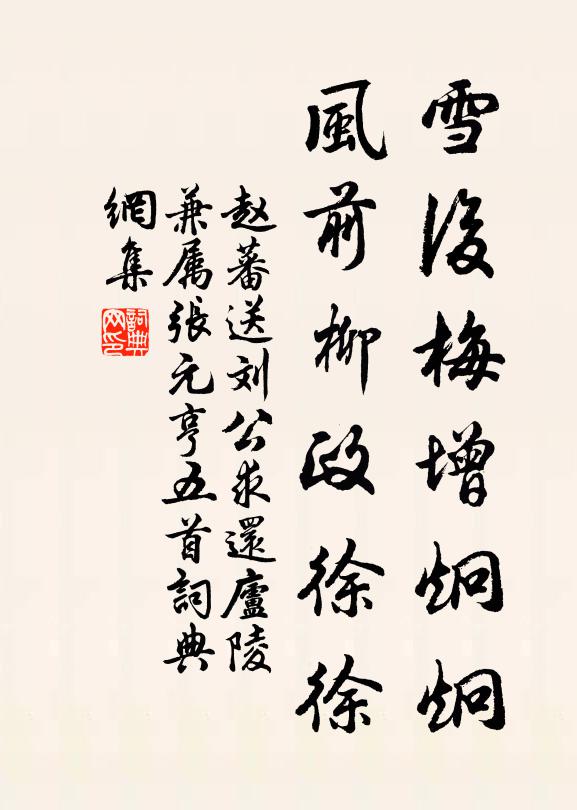 雪後梅增炯炯
風前柳政徐徐
赵蕃送刘公求還廬陵
兼属張元亨五首詞典
網集
詞典
网印